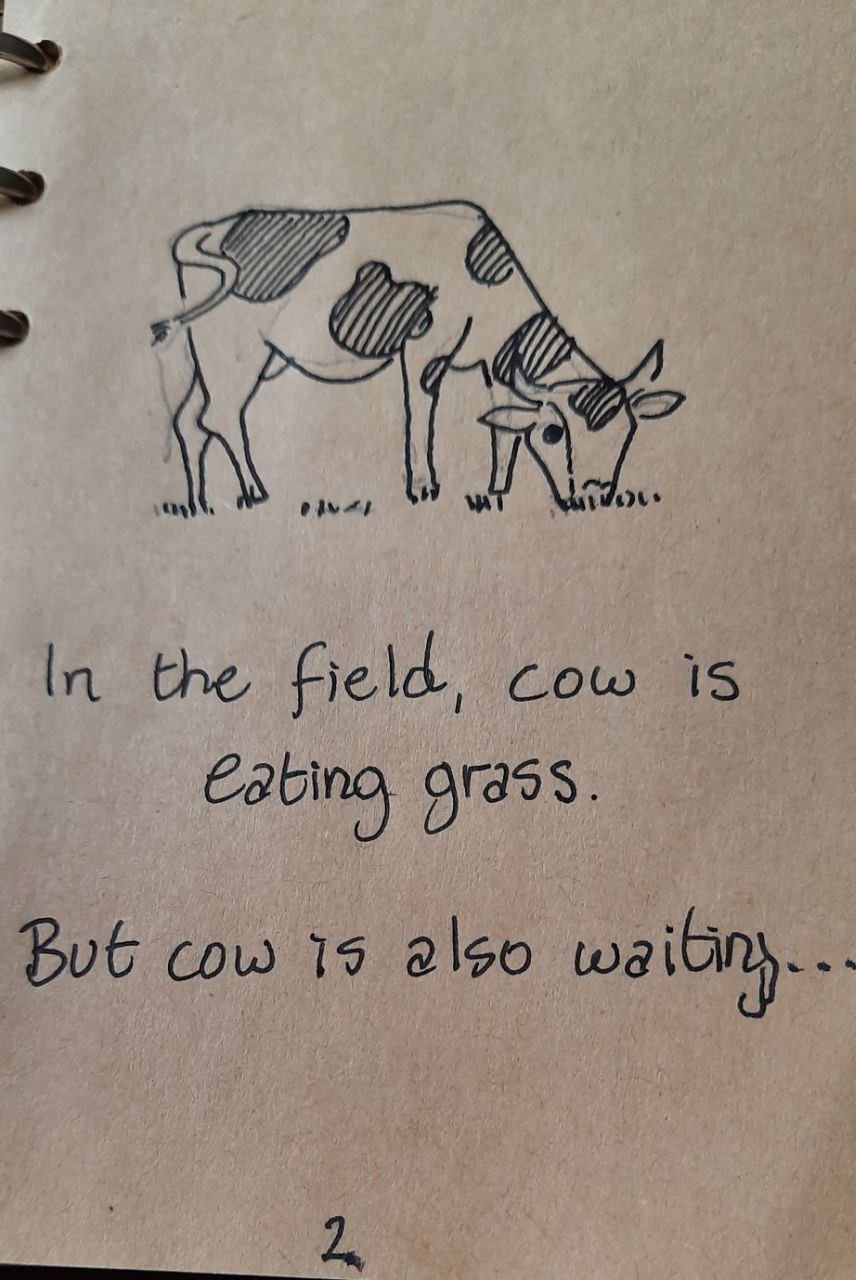 In the field, cow is
eating grass.
But cow is also waiting...
2